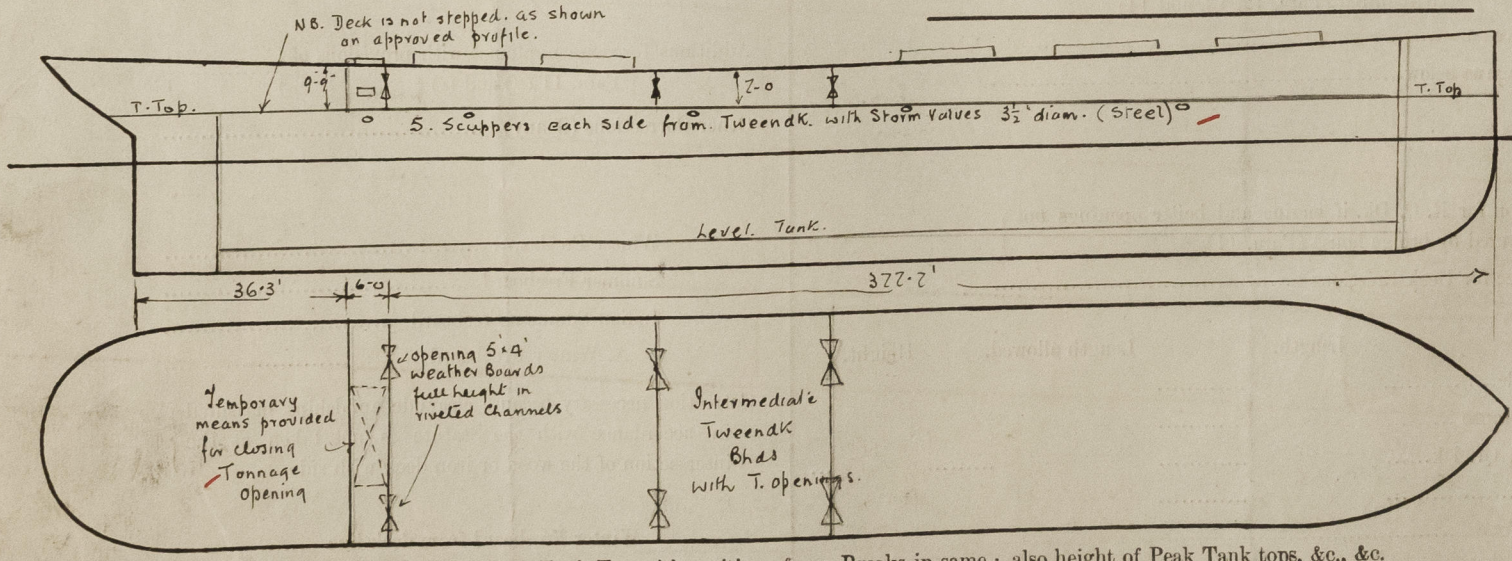 NB. Deck is not stepped. as shown
on approved profile.
9'-9"
7-0
T. Top.
T. Top
5. Scuppers each side from. Tweendk. with Storm Valves 3½" diam. (Steel)
Level. Tank.
36·3'
6-0
322·2'
opening 5'×4'
weather Boards
full height in
riveted Channels
Temporary
means provided
for closing
Tonnage
opening
Intermediate
Tweendk
Bhds
with T. openings.
Breaks in same; also height of Peak Tank tops, &c., &c.